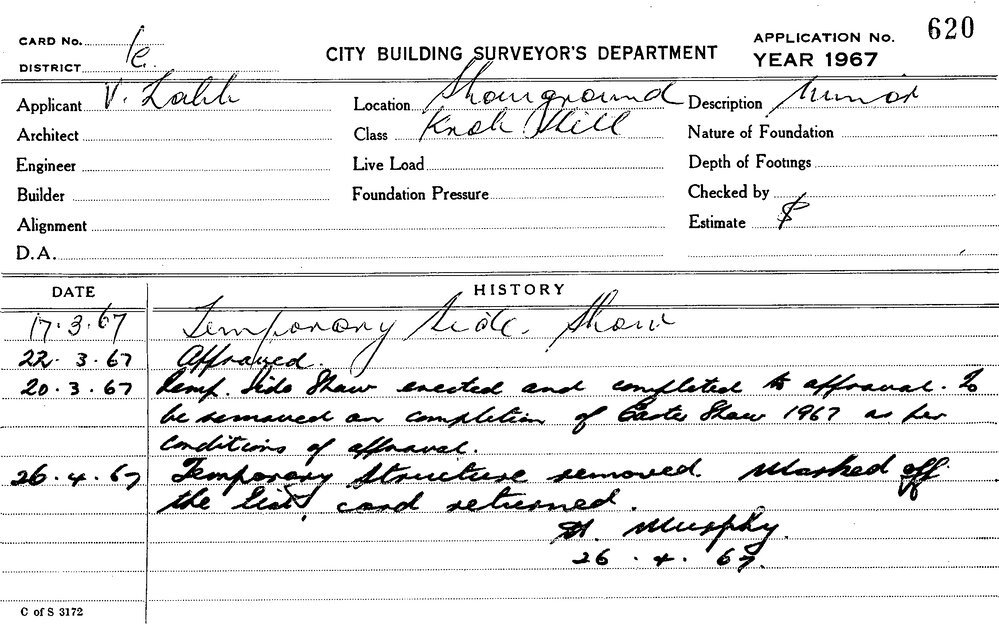 620
CARD No.
1e
APPLICATION No.
CITY BUILDING SURVEYOR'S DEPARTMENT
DISTRICT
YEAR 1967
Applicant V.
Location Showground
Description Minor
Architect
Class Knok Hill
Nature of Foundation
Engineer
Live Load
Depth of Footings
Builder
Foundation Pressure
Checked by
Alignment
Estimate $
D.A.
DATE HISTORY
17.3.67 Temporary Side Show
22.3.67 Approved.
20.3.67 Temp. Side Show erected and completed to approval. To
be removed on completion of Easter Show 1967 as per
conditions of approval.
26.4.67 Temporary Structure removed. Marked off
the list, card returned.
Murphy.
26.4.67.
C of S 3172